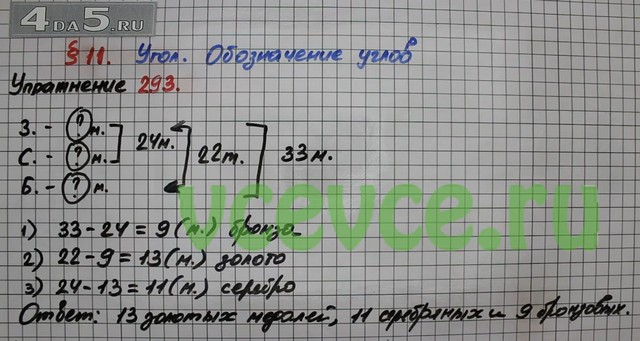 4DA5.RU
§ 11. Угол. Обозначение углов
Упражнение 293.
З. - ? м.
С. - ? м.
Б. - ? м.
24м.
22т.
33м.
vcevce.ru
1) 33-24=9(м.) бронза
2) 22-9=13(м.) золото
3) 24-13=11(м.) серебро
Ответ: 13 золотых медалей, 11 серебряных и 9 бронзовых.